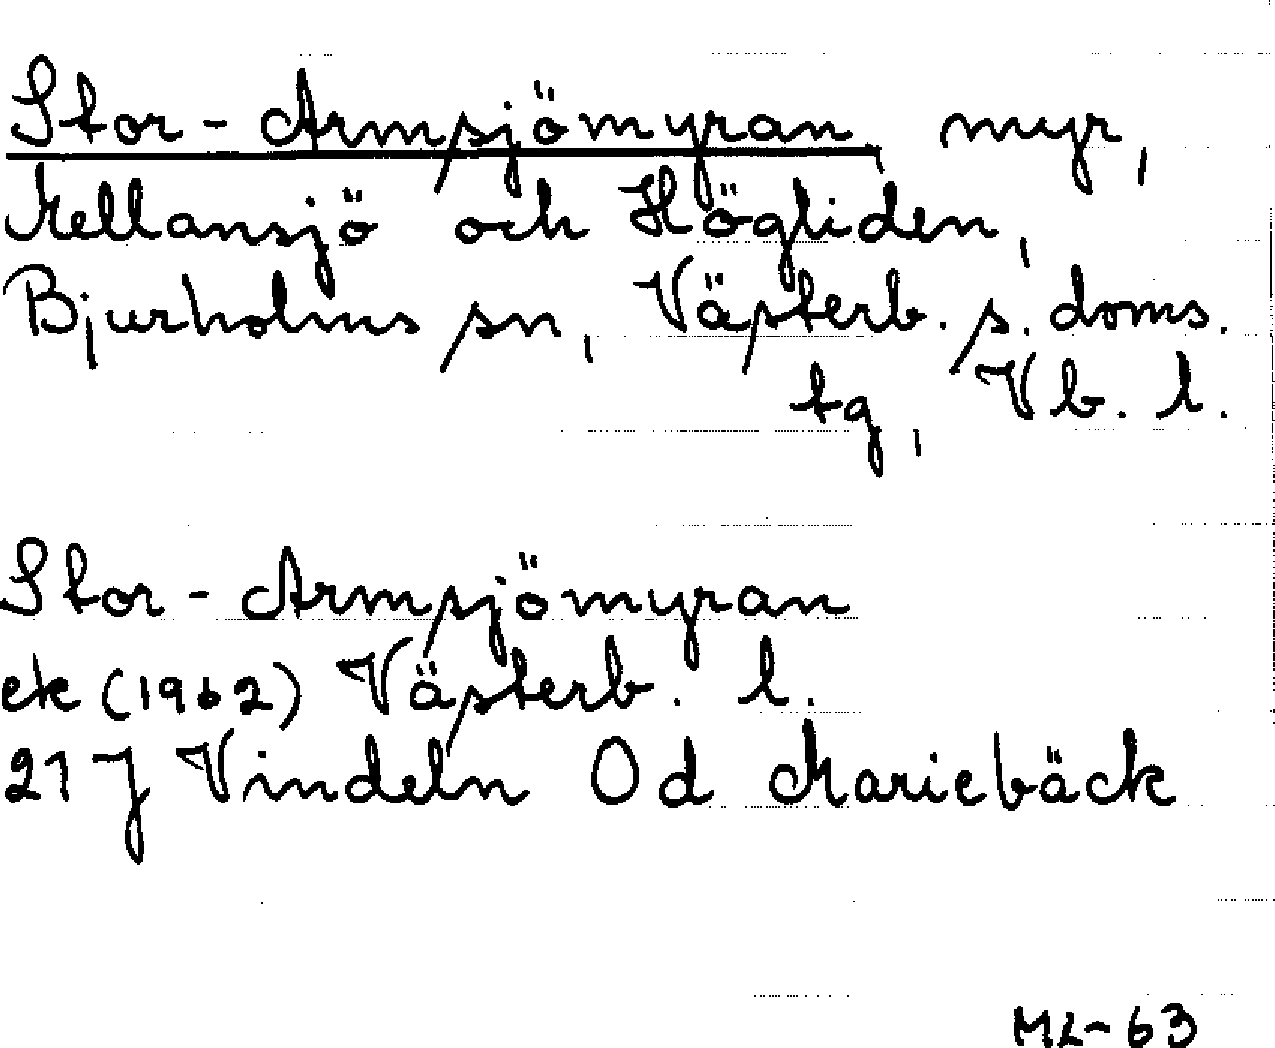 Stor-Armsjömyran, myr,
Mellansjö och Högliden,
Bjurholms sn, Västerb. s. doms.
tg, Vb. l.
Stor-Armsjömyran
ek (1962) Västerb. l.
21 J Vindeln 0d Mariebäck
ML-63